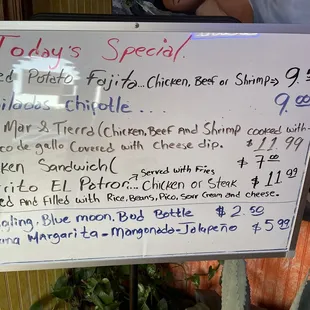 Today's Special
ed Potato Fajita... Chicken, Beef or Shrimp⇒ 9.
ilaquas Chipotle... 9.00
Mar & Tierra (Chicken, Beef And Shrimp cooked with
co de gallo Covered with Cheese dip. $11.99
ken Sandwich( Served with Fries $7.00
rito EL Patron... Chicken or Steak $11.99
ed And Filled with Rice, Beans, Pico, Sour Cream and cheese.
Blue moon, Bud Bottle $2.50
Margarita - Mangonada - Jalapeño $5.99